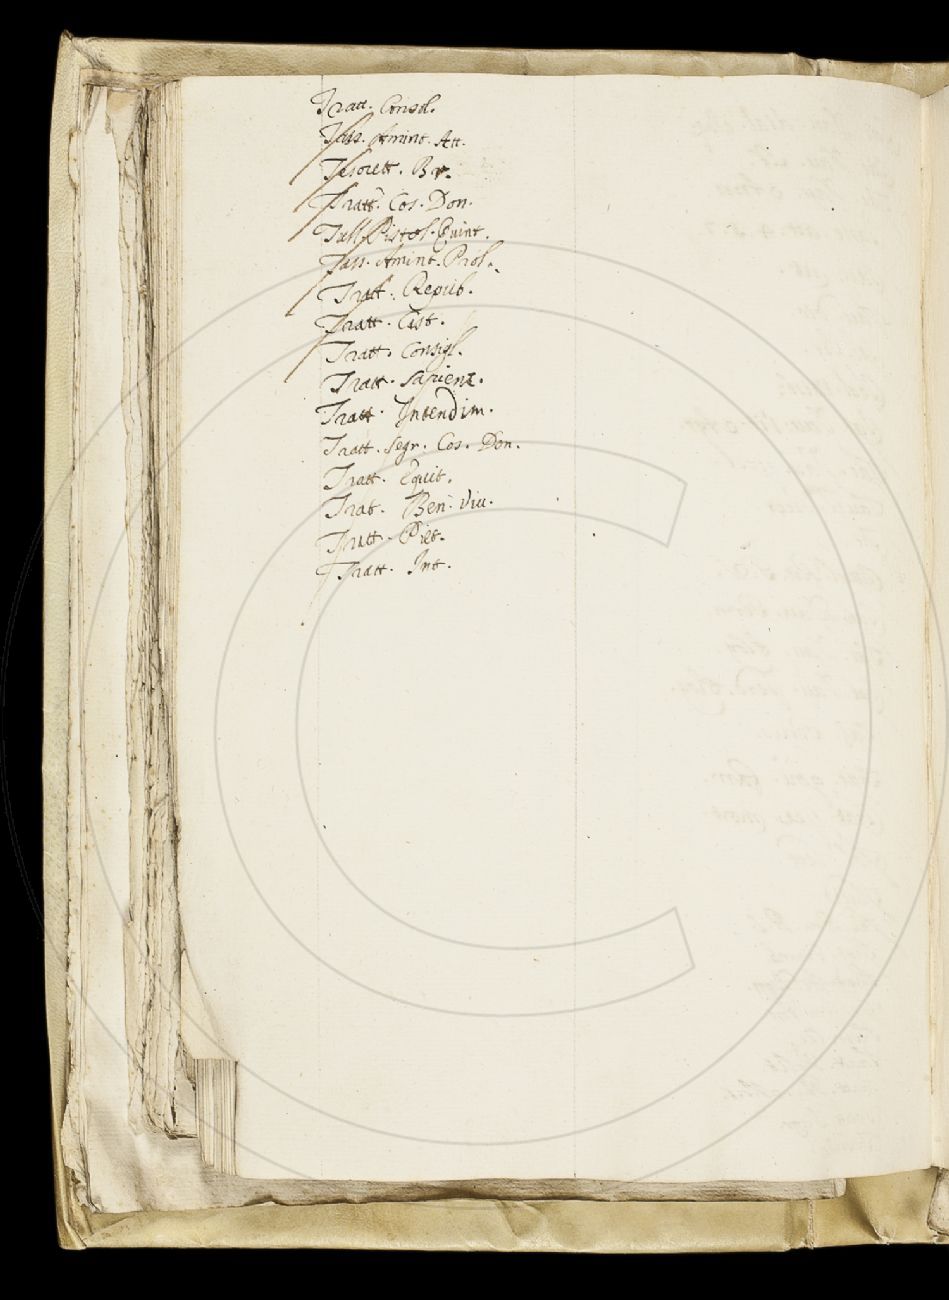 Tratt. Consol.
Tass. Amint. Att.
Tesorett. Br.
Tratt. Cos. Don.
Tull. Pistol. Quint.
Tass. Amint. Prol.
Tratt. Repub.
Tratt. Cast.
Tratt. Consigl.
Tratt. Sapienz.
Tratt. Intendim.
Tratt. Segr. Cos. Don.
Tratt. Equit.
Trat. Ben. Viu.
Tratt. Piet.
Tratt. Int.